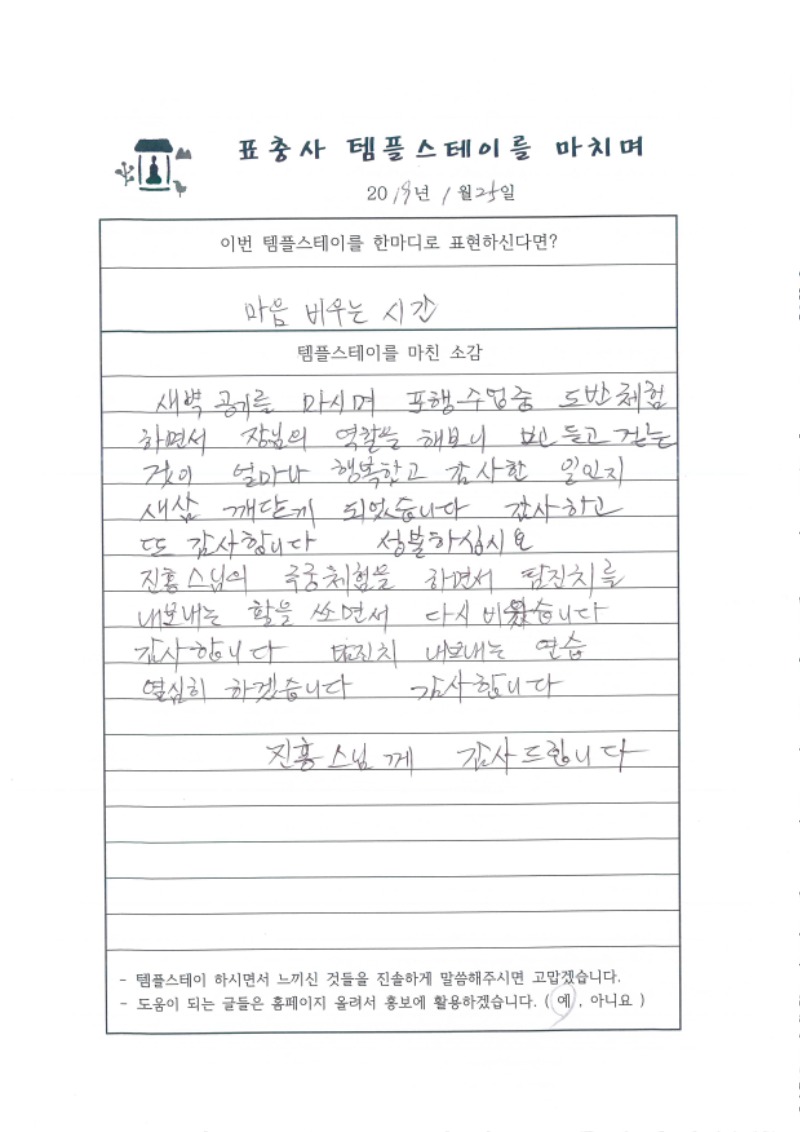 표충사 템플스테이를 마치며
2019년 1월 25일
이번 템플스테이를 한마디로 표현하신다면?
마음 비우는 시간
템플스테이를 마친 소감
새벽 공기를 마시며 포행수업중 도반체험
하면서 장님의 역할을 해보니 보고 듣고 걷는
것이 얼마나 행복한고 감사한 일인지
새삼 깨닫게 되었습니다 감사하고
또 감사합니다 성불하십시요
진흥스님의 국궁체험을 하면서 탐진치를
내보내는 활을 쏘면서 다시 비웠습니다
감사합니다 탐진치 내보내는 연습
열심히 하겠습니다 감사합니다
진흥스님께 감사드립니다
- 템플스테이 하시면서 느끼신 것들을 진솔하게 말씀해주시면 고맙겠습니다.
- 도움이 되는 글들은 홈페이지 올려서 홍보에 활용하겠습니다. ( 예 , 아니요 )